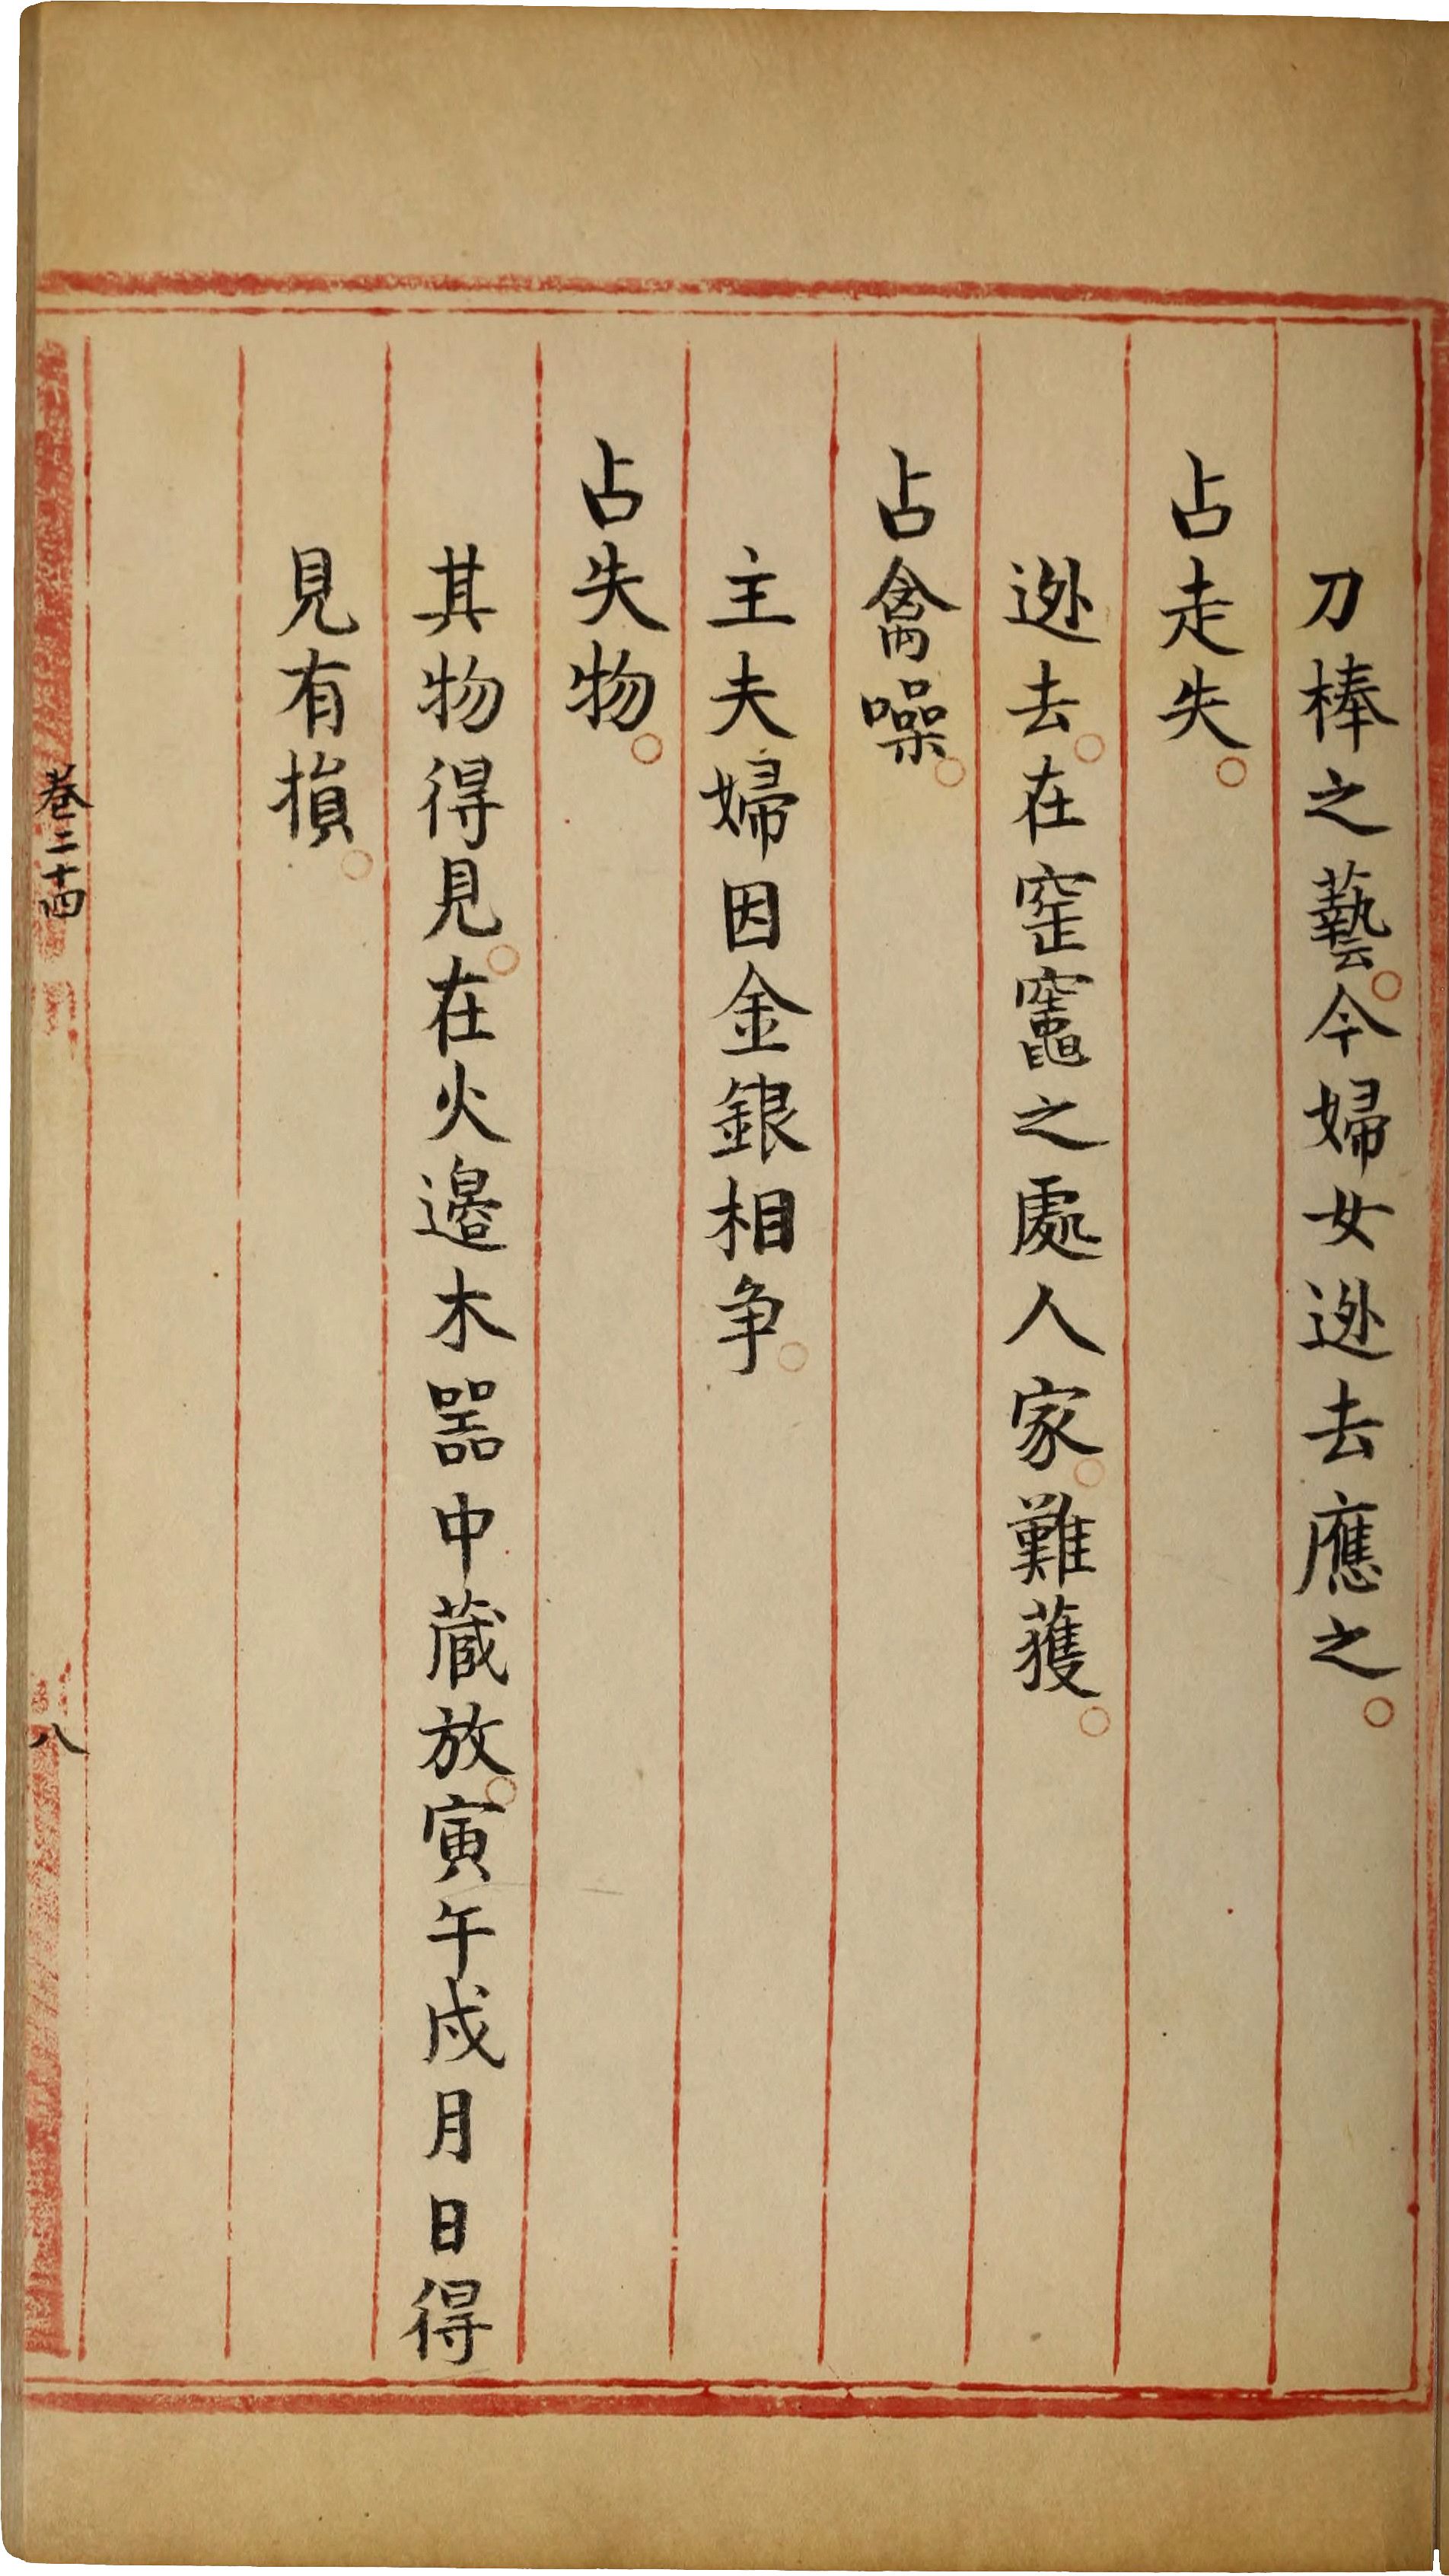 刀棒之藝。今婦女迯去應之。
占走失。
迯去。在窑竈之處人家。難獲。
占禽噪。
主夫婦因金銀相争。
占失物。
其物得見。在火邉木噐中蔵放。寅午戌月日得
見有損。
巻二十四
八